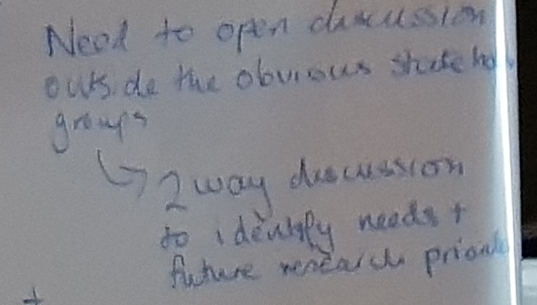 Need to open discussion
outside the obvious stakeho
groups
↳ 2 way discussion
to identify needs +
future research priorit
+